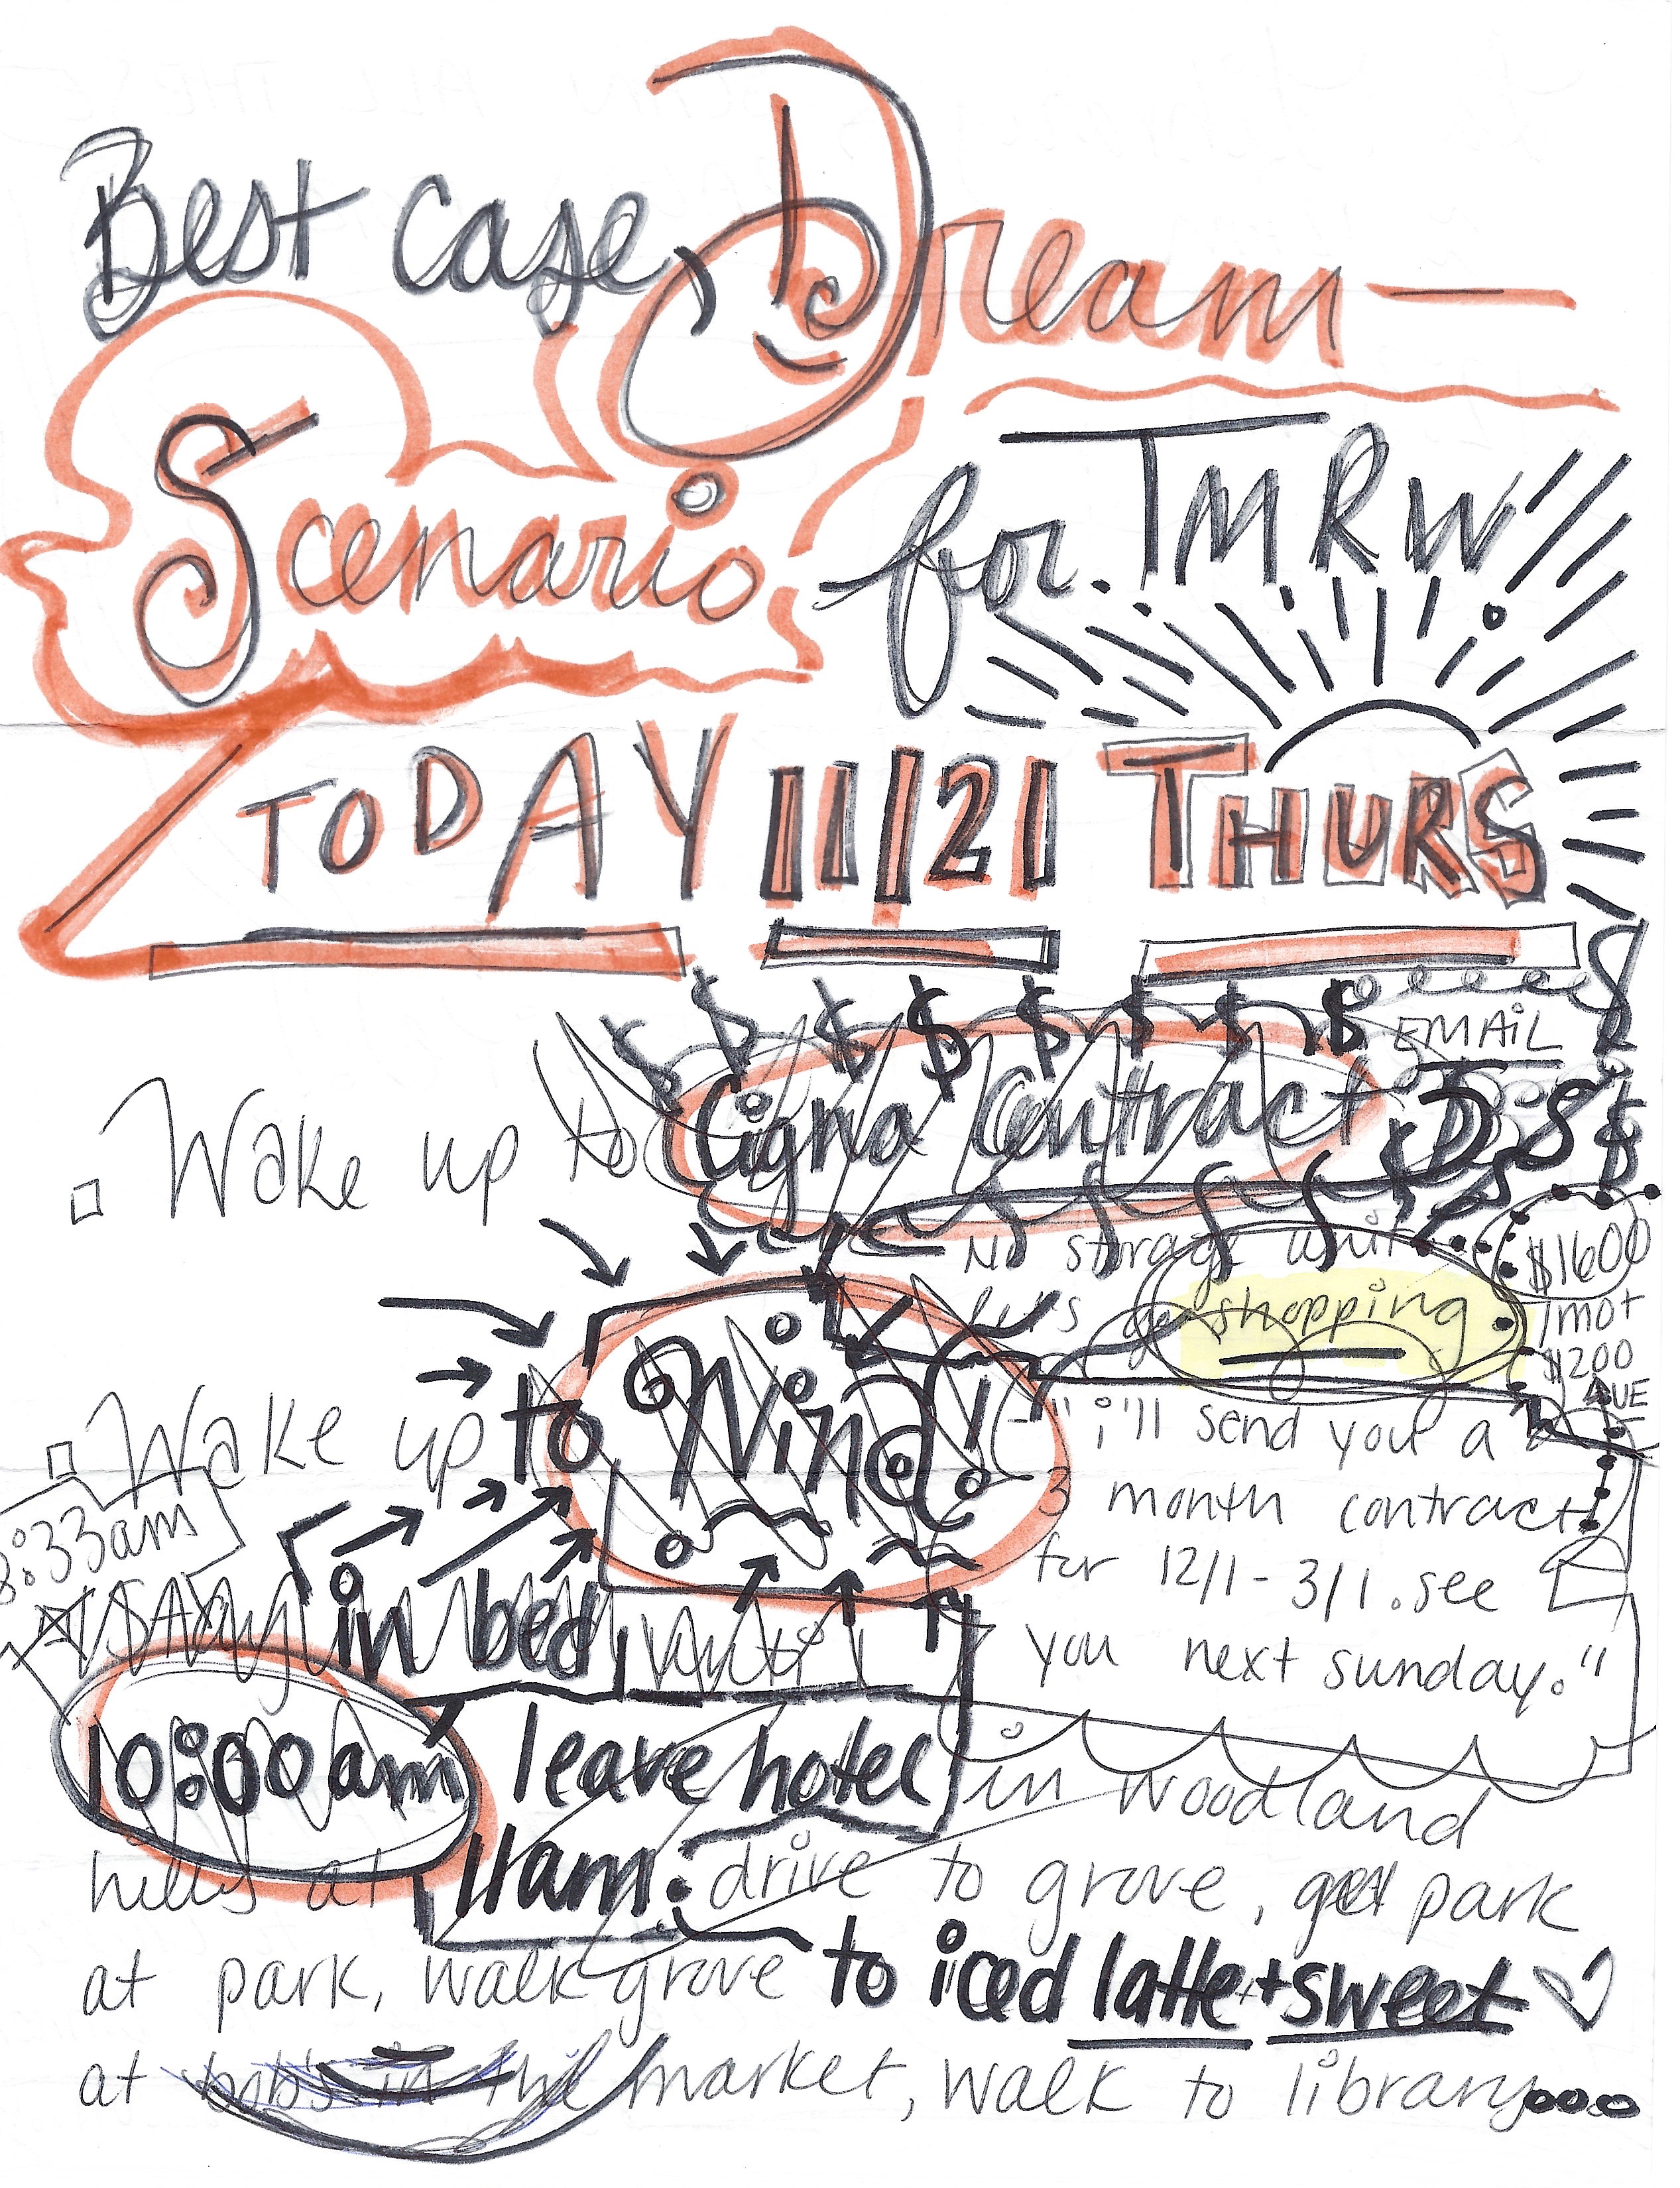 Best case, Dream—
Scenario
for TMRW
TODAY 11/21 THURS
$ $ $ $ $ $ $ $
EMAIL
Wake up to Cigna Contract
$
No storage unit
let's go shopping
$1600
/mo +
$200
AUE
Wake up to Wind!
"i'll send you a
3 month contract
for 12/1 - 3/1. see
you next sunday."
8:33am
stay in bed until
10:00am leave hotel in woodland
hills at 11am: drive to grove, park
at park, walk grove to iced latte + sweet
at bob's in the market, walk to library....